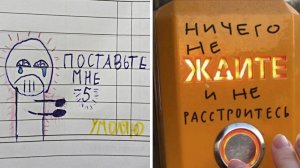 ПОСТАВЬТЕ
МНЕ
5
УМОЛЯЮ
НИЧЕГО
НЕ
ЖДИТЕ
И НЕ
РАССТРОИТЕСЬ